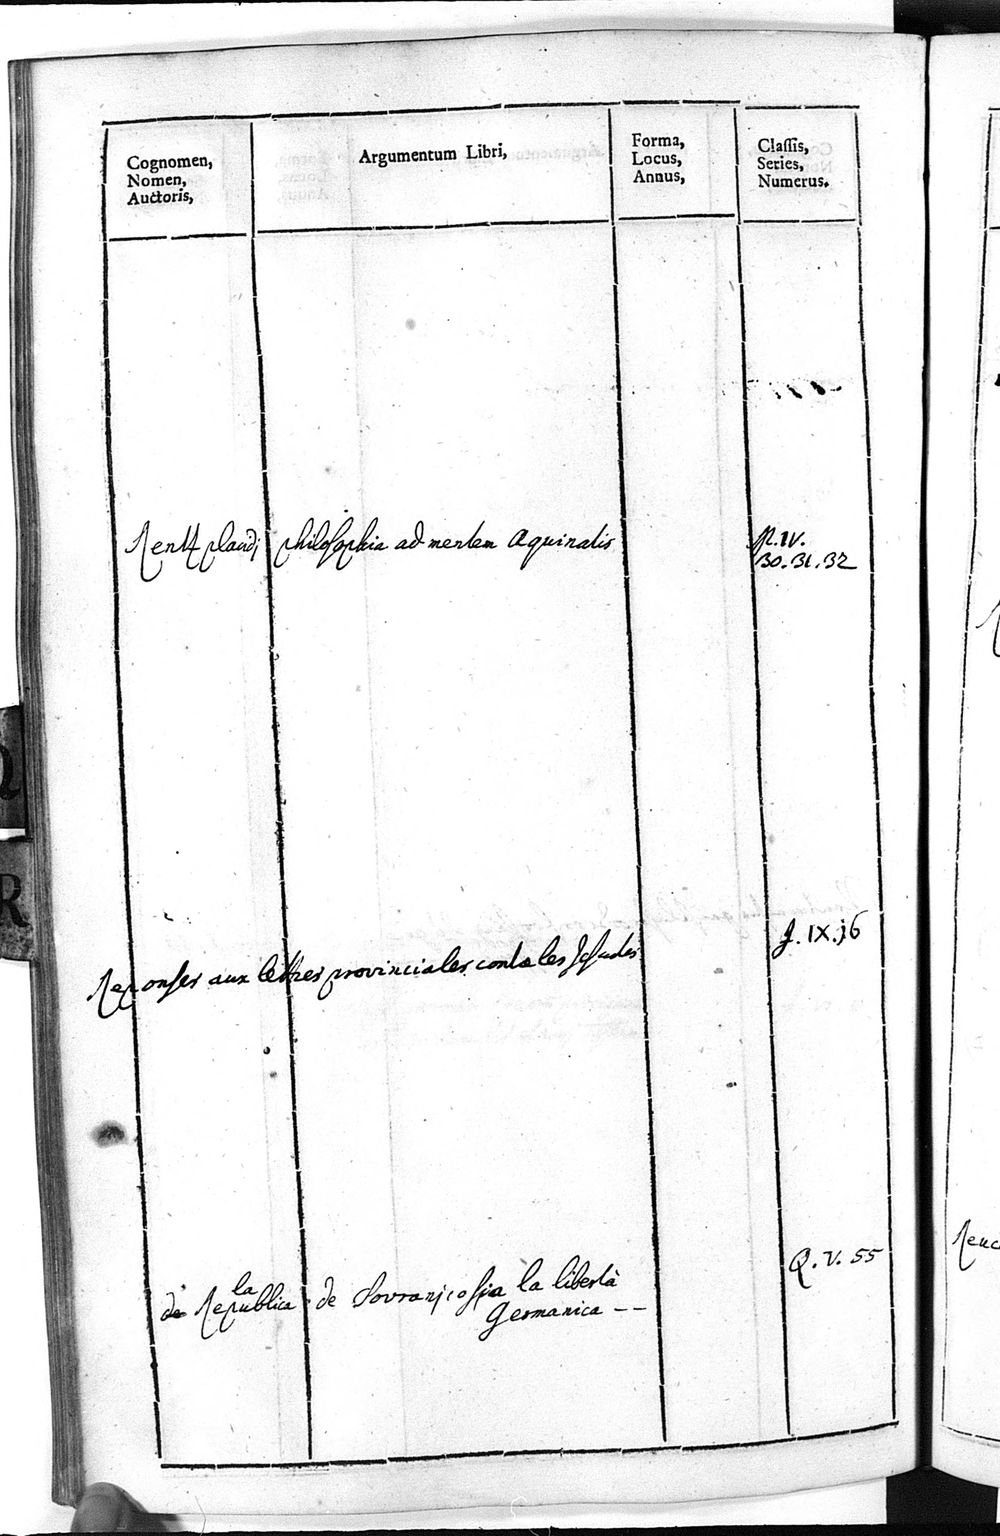 Cognomen,
Nomen,
Auctoris,
Argumentum Libri,
Forma,
Locus,
Annus,
Classis,
Series,
Numerus.
philosophia ad mentem Aquinatis
IV.
30. 31. 32
Reponses aux lettres provinciales
les Jesuites
IX. 16
la
de Republica de Sovrani, o sia la libertà
Germanica --
Q. V. 55
Q
R